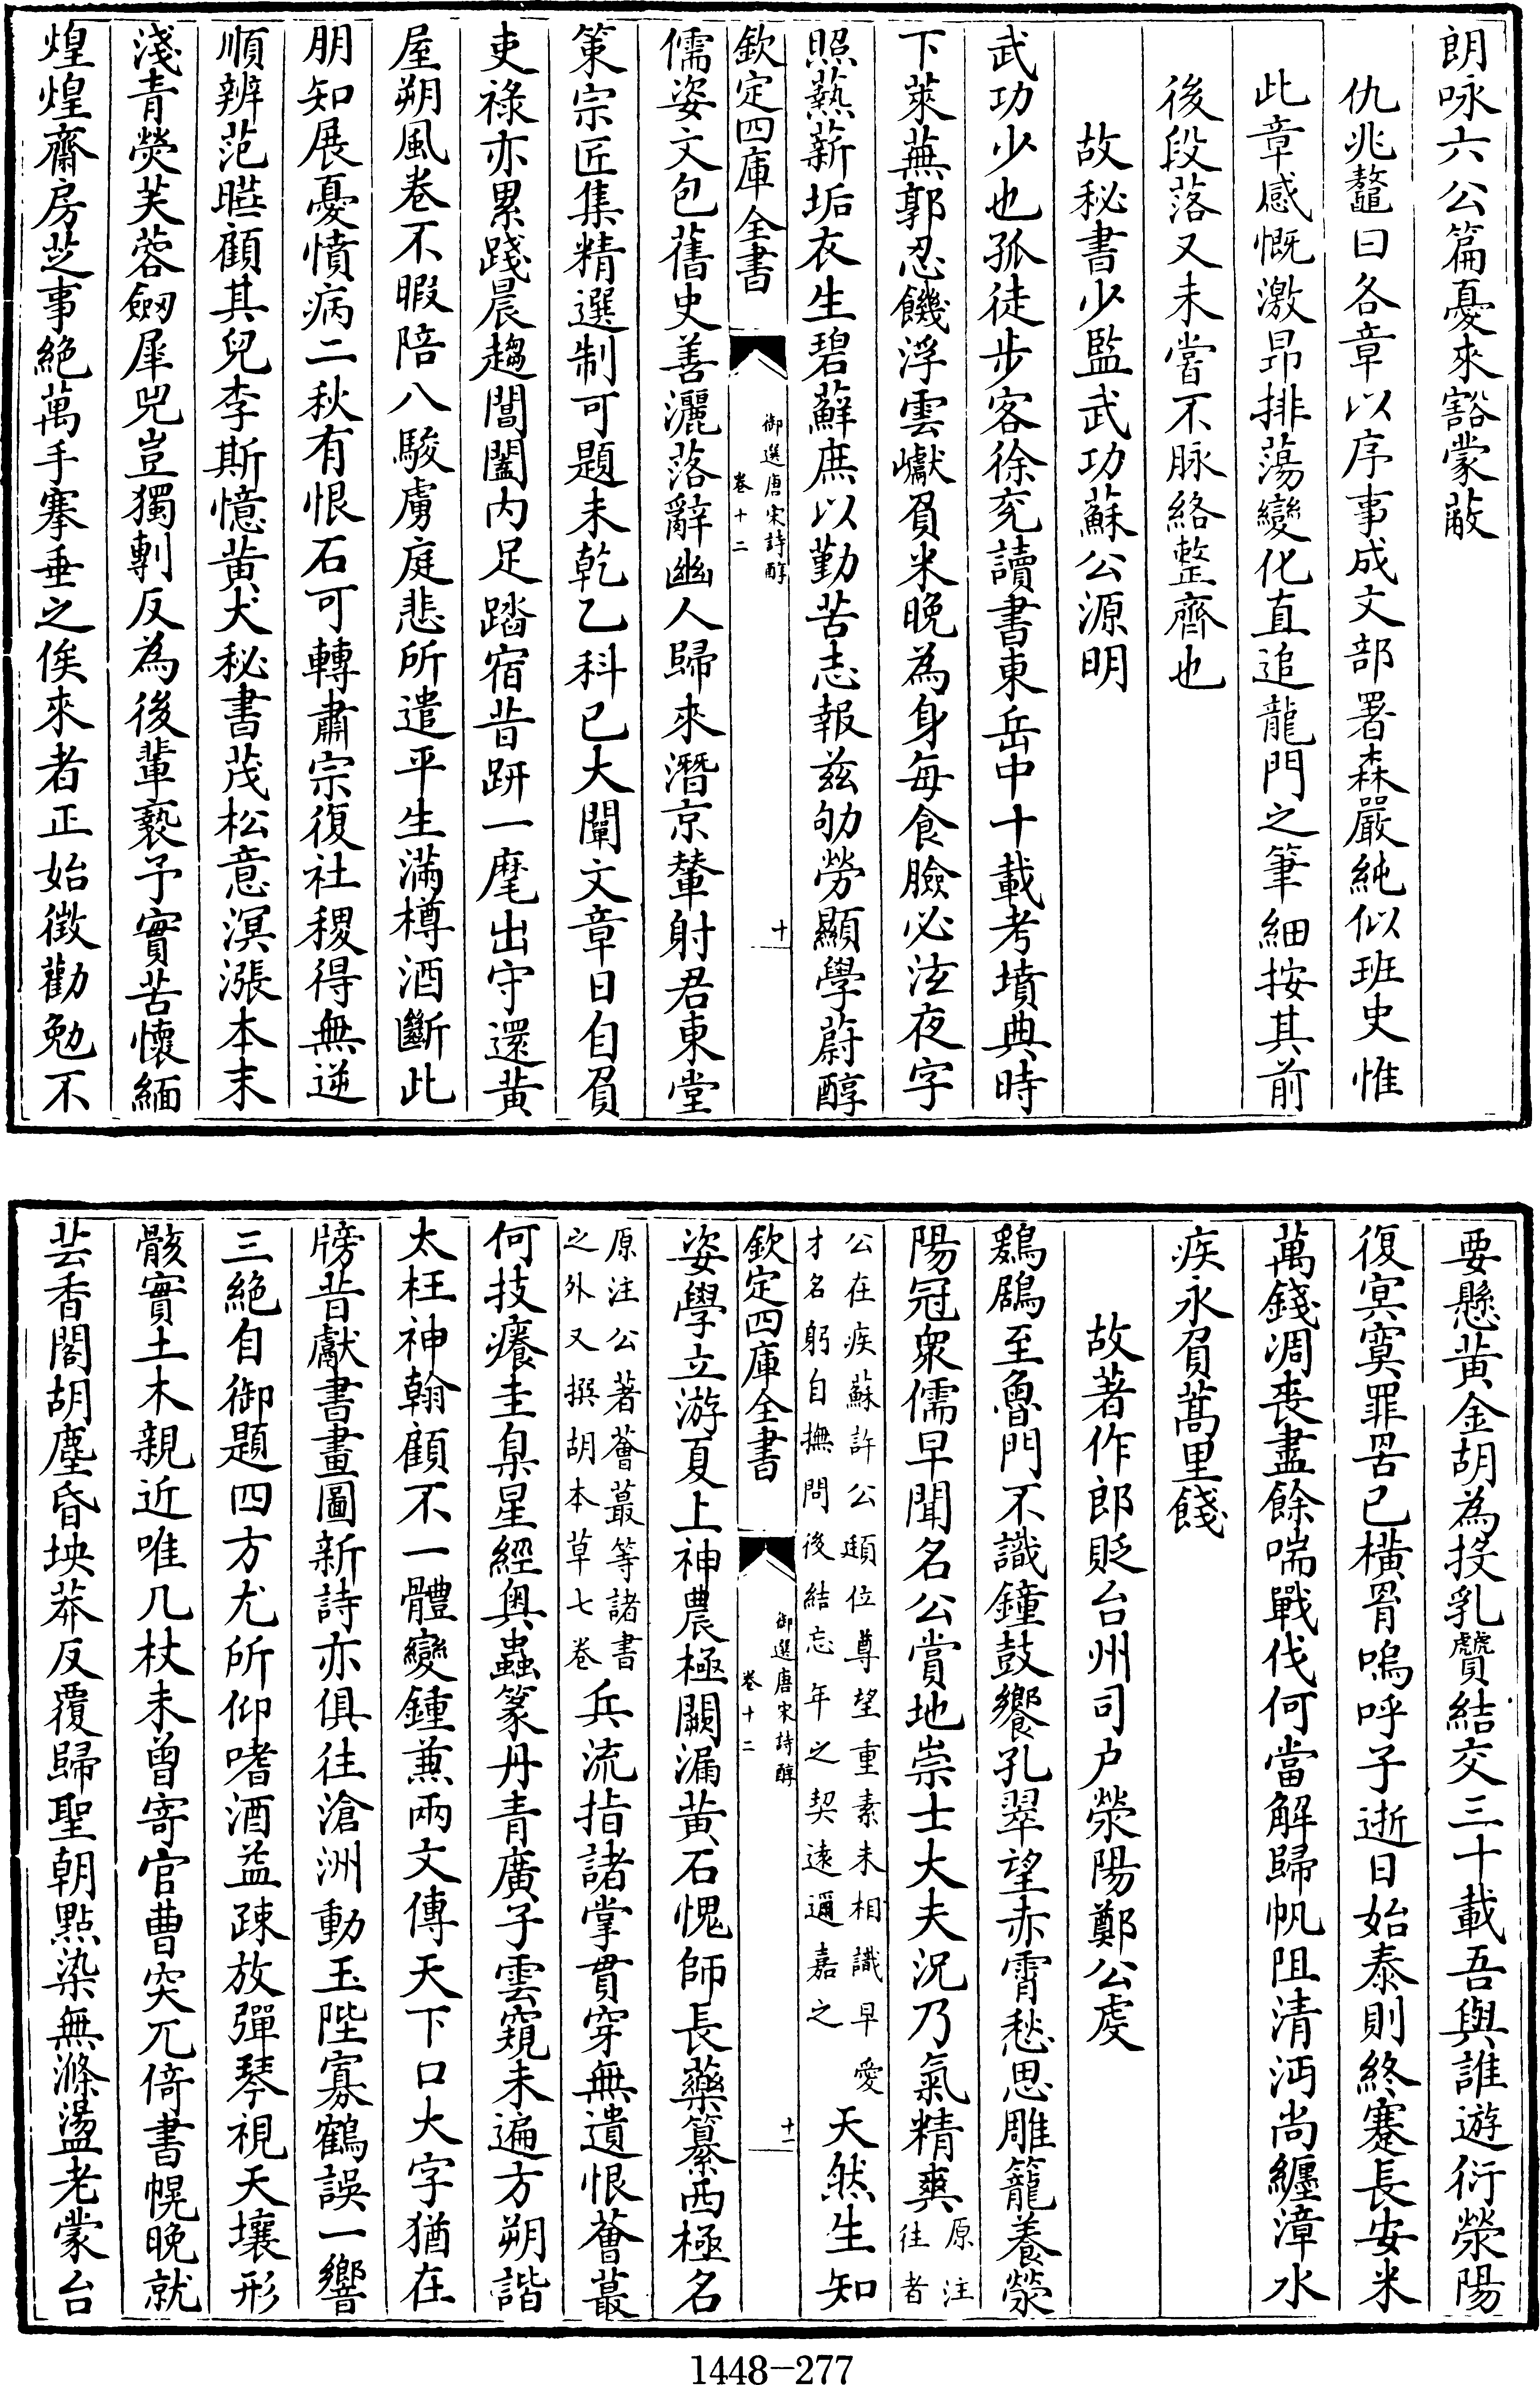 朗咏六公篇憂來豁蒙蔽
仇兆鼇曰各章以序事成文部署森嚴純似班史惟
此章感慨激昻排蕩變化直追龍門之筆細按其前
後段落又未嘗不脉絡整齊也
故秘書少監武功蘇公源明
武功少也孤徒步客徐兖讀書東岳中十載考墳典時
下萊蕪郭忍饑浮雲巘負米晚為身每食臉必泫夜字
照爇薪垢衣生碧蘚庶以勤苦志報兹劬勞顯學蔚醇
欽定四庫全書
御選唐宋詩醇
卷十二
十
儒姿文包舊史善灑落辭幽人歸來潛京輦射君東堂
策宗匠集精選制可題未乾乙科已大闡文章日自負
吏祿亦累踐晨趨閶闔内足踏宿昔趼一麾出守還黄
屋朔風卷不暇陪八駿虜庭悲所遣平生滿樽酒斷此
朋知展憂憤病二秋有恨石可轉肅宗復社稷得無逆
順辨范曄顧其兒李斯憶黄犬秘書茂松意溟漲本末
淺青熒芙蓉劒犀兕豈獨剸反為後輩褻予實苦懷緬
煌煌齋房芝事絶萬手搴垂之俟來者正始徵勸勉不
要懸黄金胡為投乳贙結交三十載吾與誰遊衍滎陽
復冥寞罪罟已橫罥嗚呼子逝日始泰則終蹇長安米
萬錢凋喪盡餘喘戰伐何當解歸帆阻清沔尚纏漳水
疾永負蒿里餞
故著作郎貶台州司户滎陽鄭公虔
鶢鶋至魯門不識鐘鼓饗孔翠望赤霄愁思雕籠養滎
陽冠衆儒早聞名公賞地崇士大夫況乃氣精爽原注往者
公在疾蘇許公頲位尊望重素未相識早愛
才名躬自撫問後結忘年之契遠邇嘉之
天然生知
欽定四庫全書
御選唐宋詩醇
卷十二
十一
姿學立游夏上神農極闕漏黄石愧師長藥纂西極名
兵流指諸掌貫穿無遺恨薈蕞
原注公著薈蕞等諸書
之外又撰胡本草七卷
何技癢圭臬星經奥蟲篆丹青廣子雲窺未遍方朔諧
太枉神翰顧不一體變鍾兼兩文傳天下口大字猶在
牓昔獻書畫圖新詩亦俱往滄洲動玉陛寡鶴誤一響
三絶自御題四方尤所仰嗜酒益疎放彈琴視天壤形
骸實土木親近唯几杖未曾寄官曹突兀倚書幌晚就
芸香閣胡塵昏坱莽反覆歸聖朝點染無滌盪老蒙台
1448-277